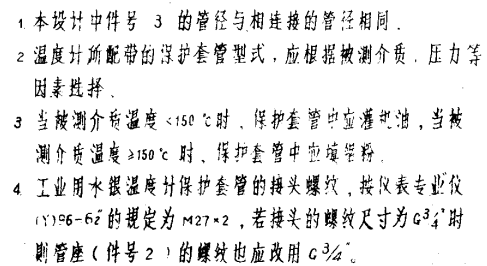 1. 本设计中件号 3 的管径与相连接的管径相同.
2 温度计所配带的保护套管型式，应根据被测介质、压力等
因素选择、
3 当被测介质温度<150℃时、保护套管中应灌机油，当被
测介质温度≥150℃时、保护套管中应填铝粉.
4. 工业用水银温度计保护套管的接头螺纹，按仪表专业"仪
(Y)96-62"的规定为M27×2，若接头的螺纹尺寸为G3/4"时
则管座(件号2)的螺纹也应改用G3/4"。